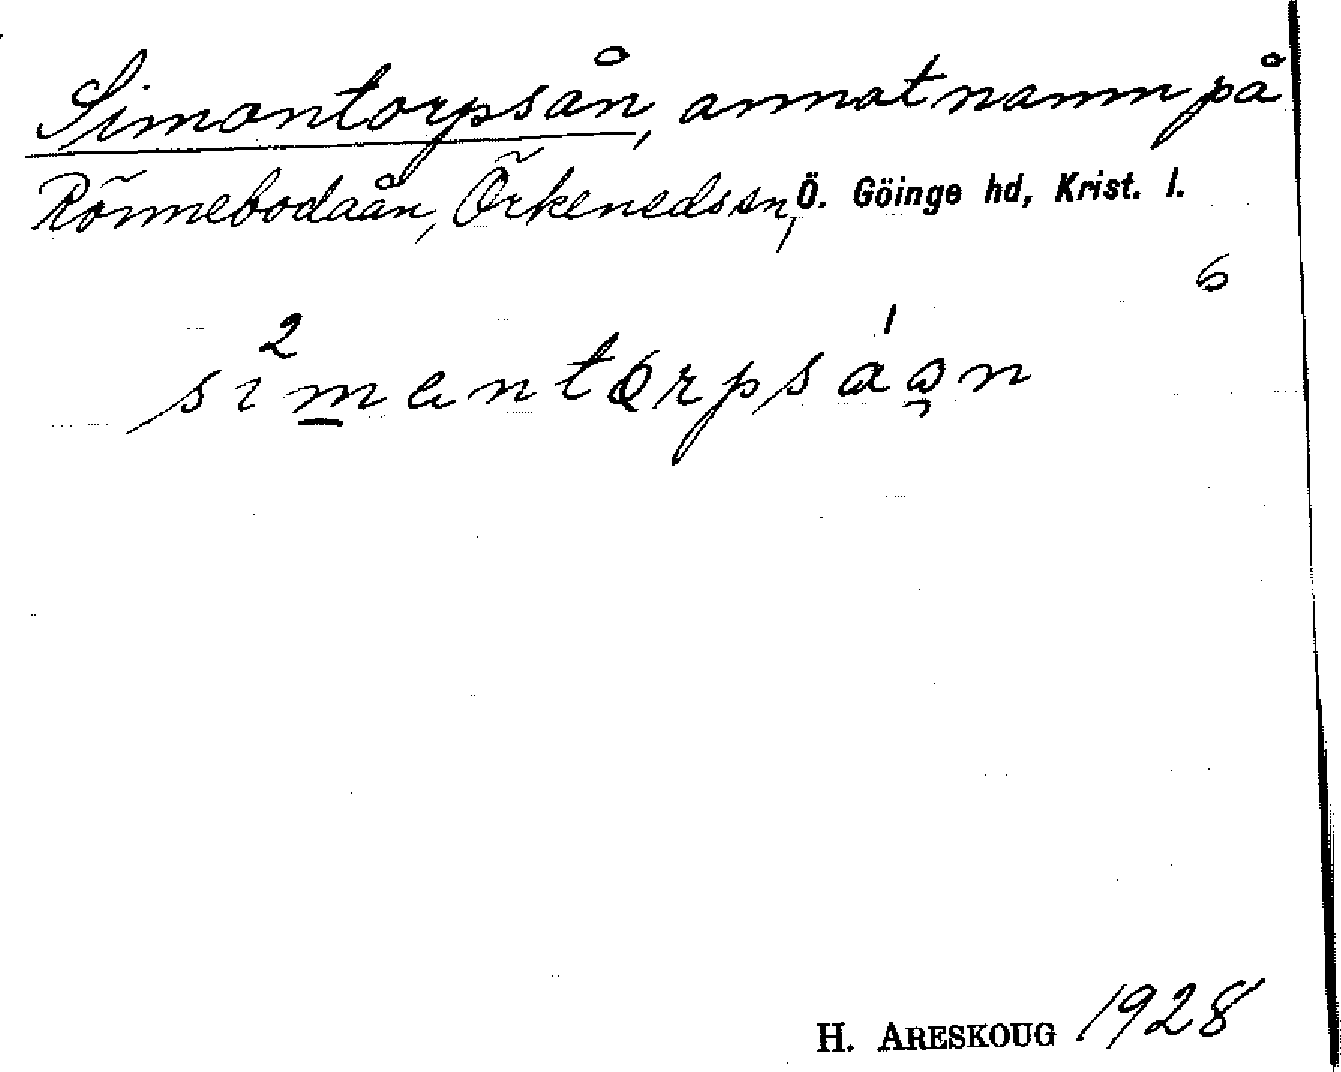 Simontorpsån, annat namn på
Rönnebodaån, Örkeneds sn, Ö. Göinge hd, Krist. l.
6
2 1
simentorpsáan
H. ARESKOUG 1928